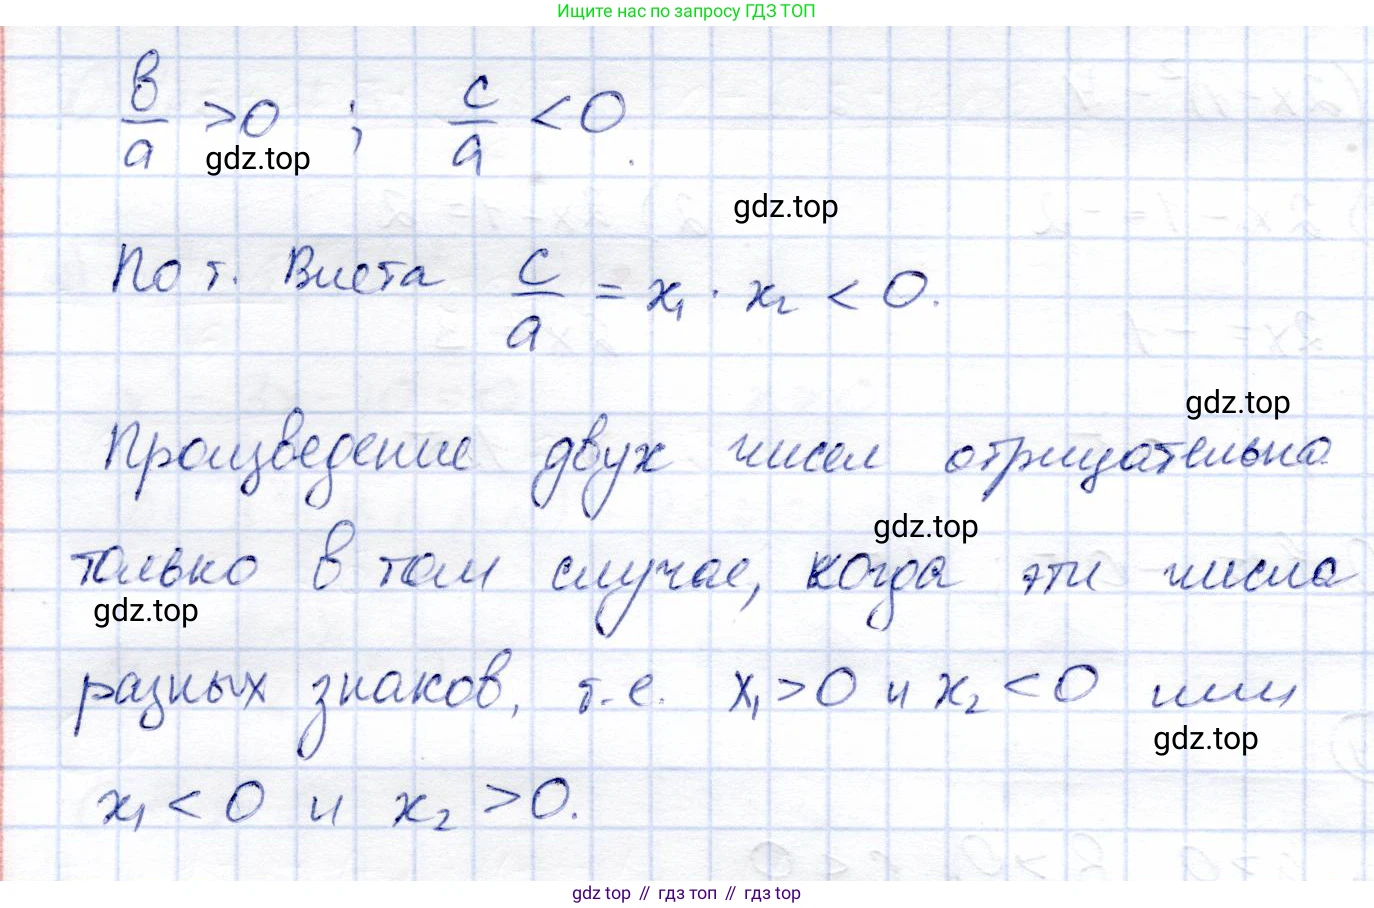 Ищите нас по запросу ГДЗ ТОП
в/а > 0 ; с/а < 0.
gdz.top
gdz.top
По т. Виета с/а = x₁ · x₂ < 0.
gdz.top
Произведение двух чисел отрицательно
gdz.top
только в том случае, когда эти числа
gdz.top
разных знаков, т.е. x₁ > 0 и x₂ < 0 или
gdz.top
x₁ < 0 и x₂ > 0.
gdz top // гдз топ // гдз top